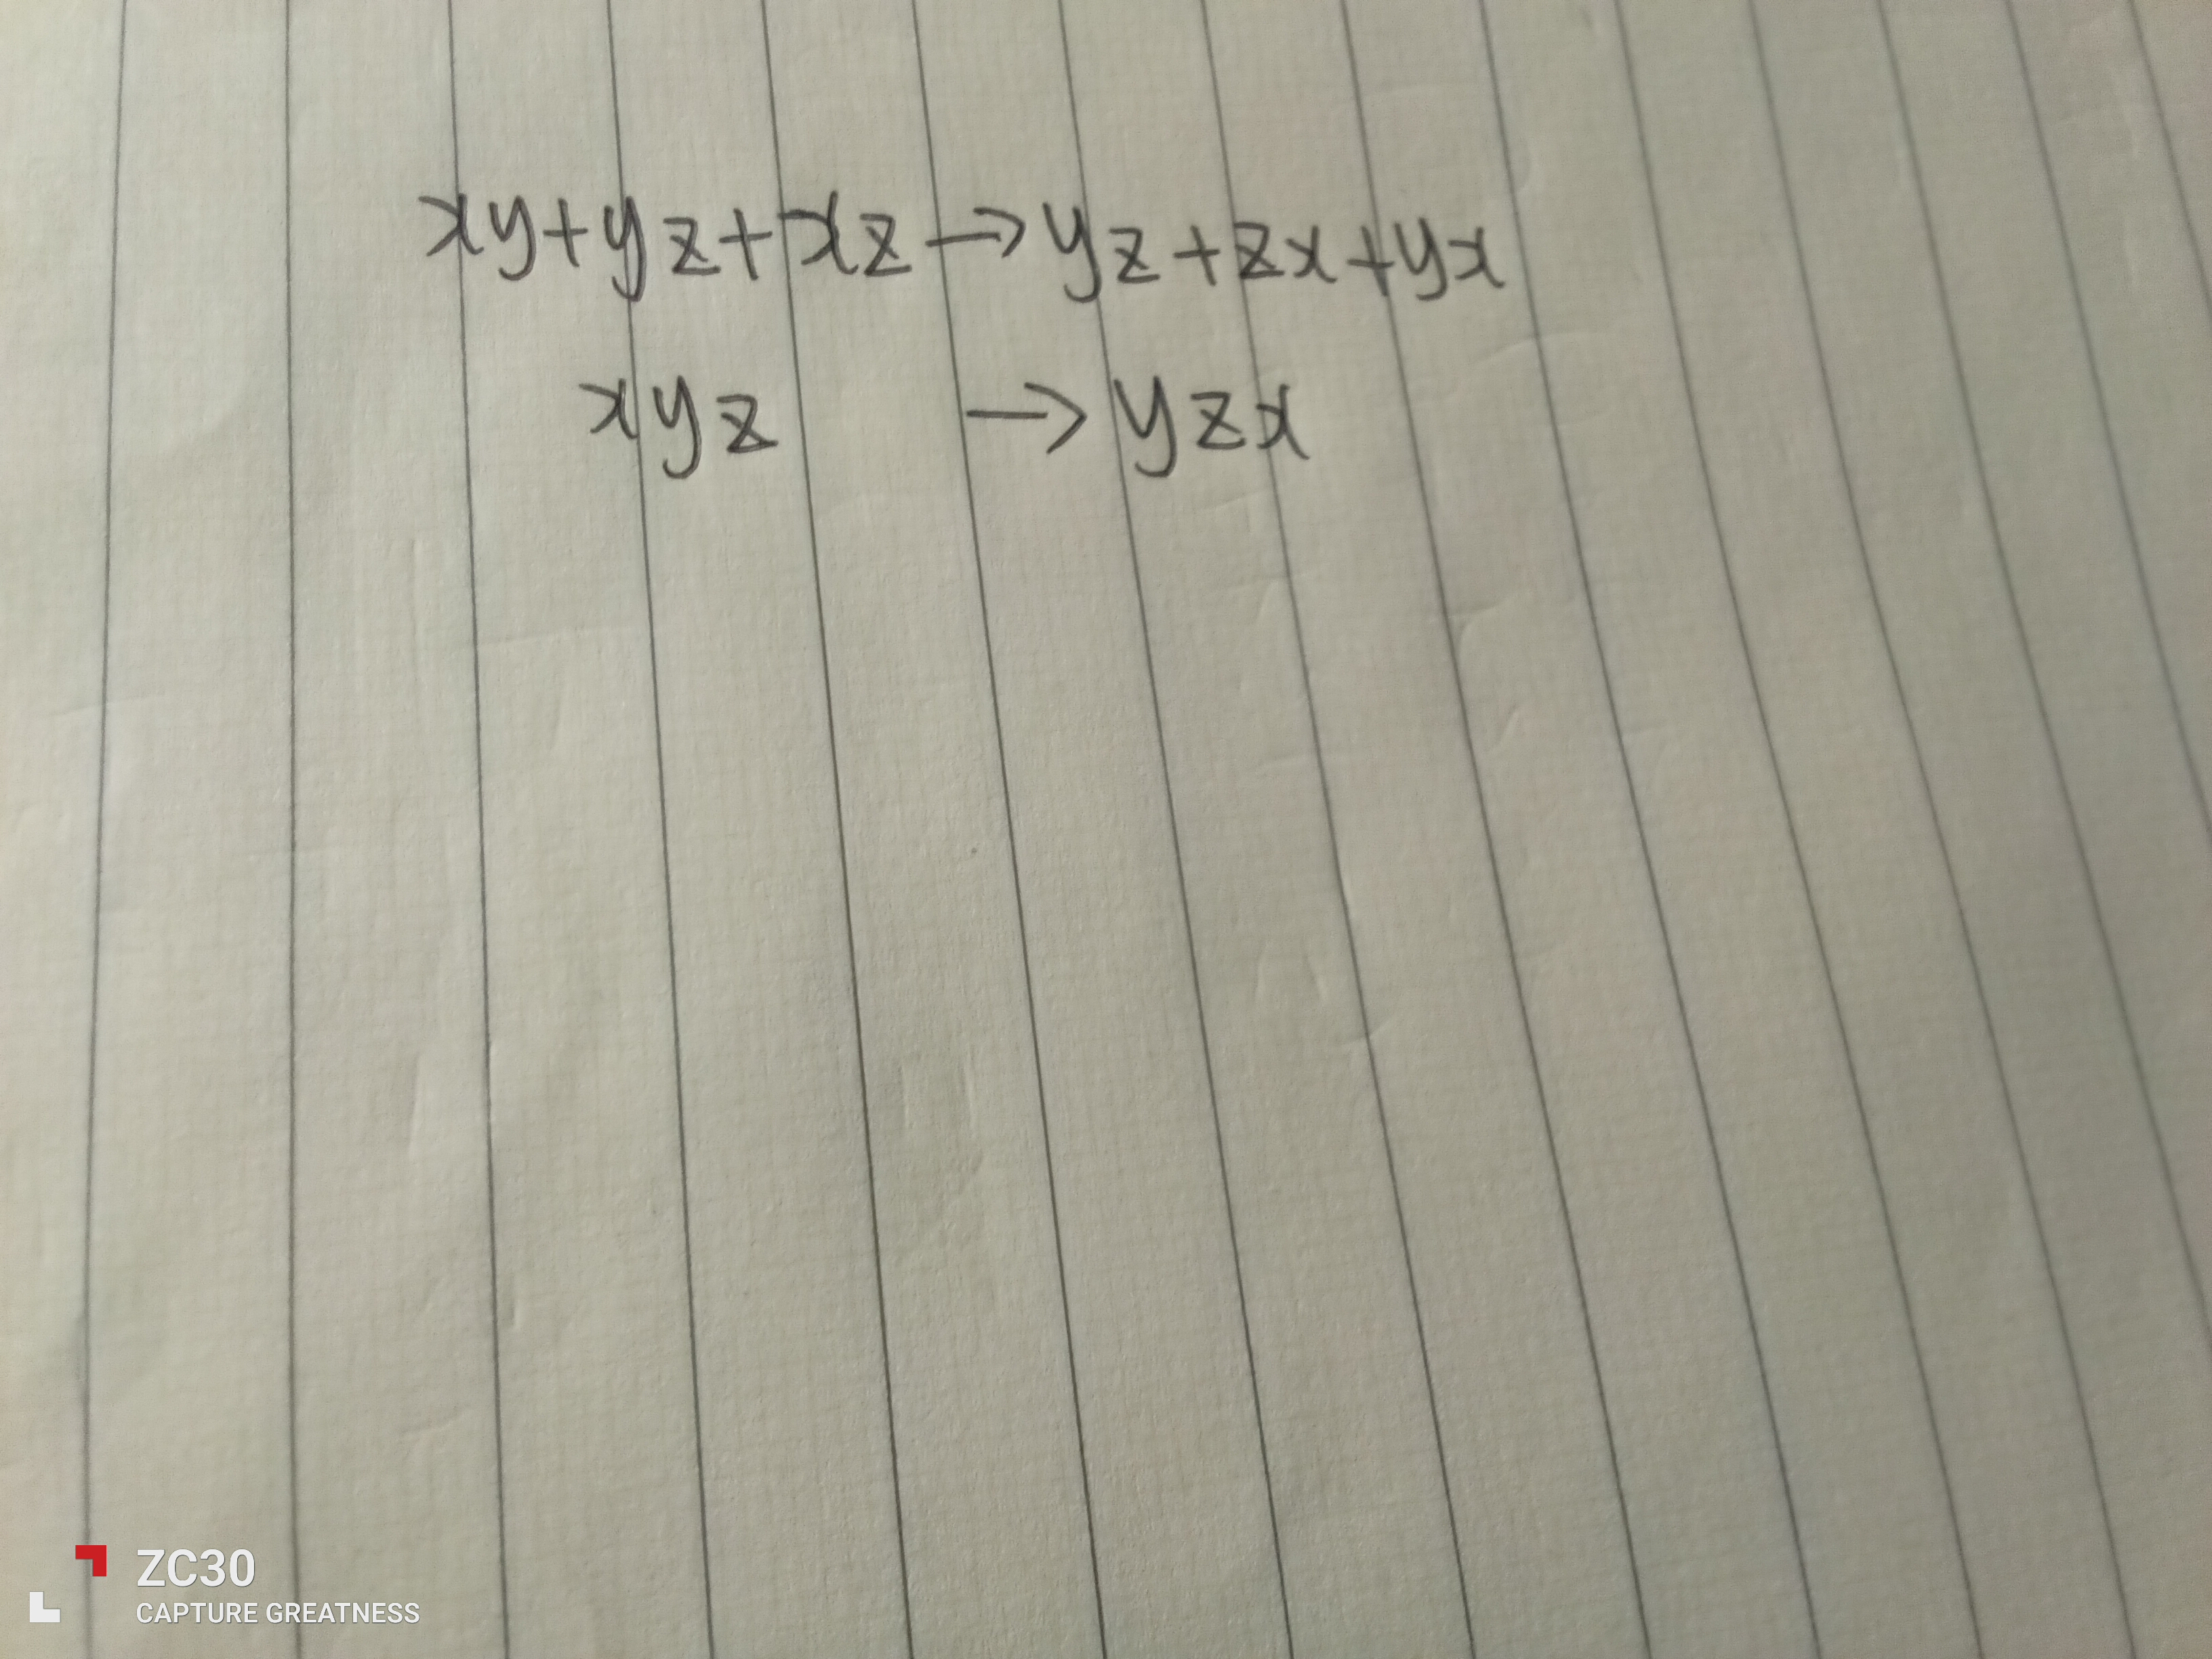 xy+yz+xz→yz+zx+yx
xyz → yzx
ZC30
CAPTURE GREATNESS